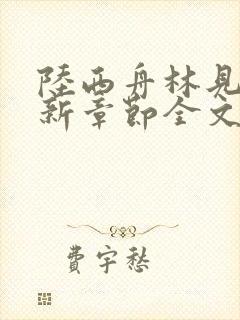 陸西舟林見
新章節全文
費宇愁